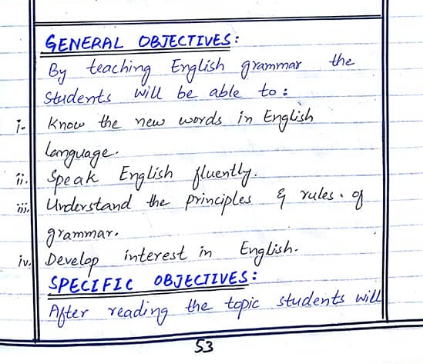 GENERAL OBJECTIVES:
By teaching English grammar the
Students will be able to:
i- Know the new words in English
language.
ii. Speak English fluently.
iii. Understand the principles & rules. of
grammar.
iv. Develop interest in English.
SPECIFIC OBJECTIVES:
After reading the topic students will
53